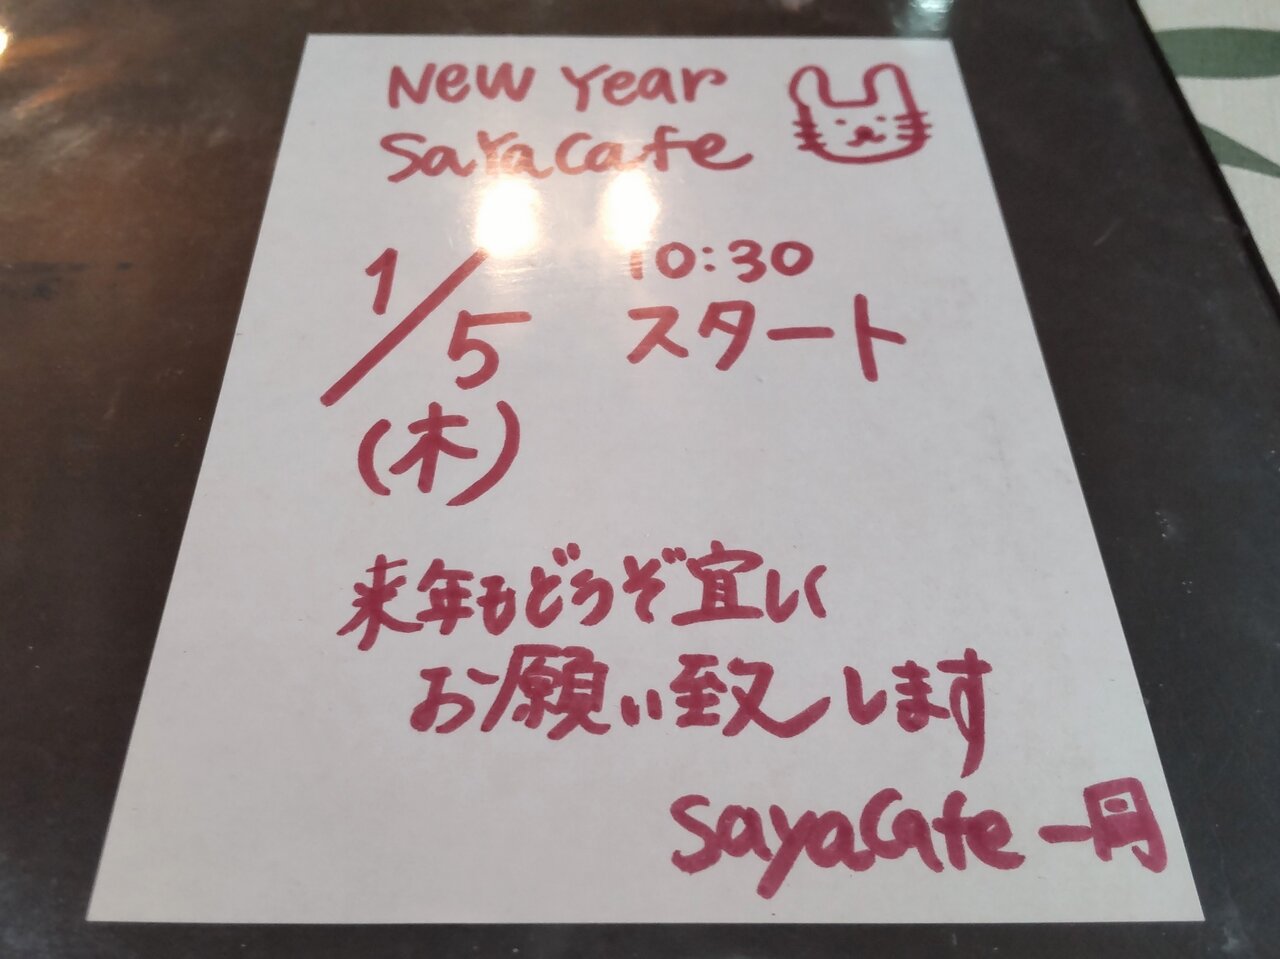 New Year
SaYa cafe
1/5 10:30
スタート
(木)
来年もどうぞ宜しく
お願い致します
SayaCafe 一円